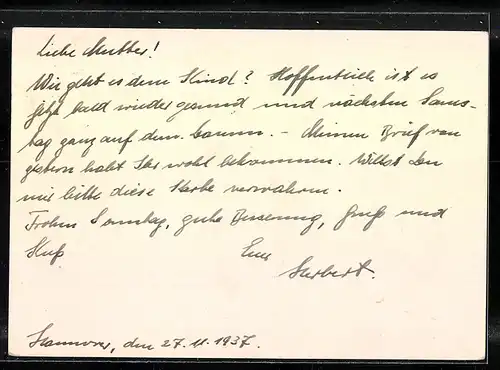 Liebe Mutter!
Wie geht es dem Kind? Hoffentlich ist es
jetzt bald wieder gesund und nächsten Sams-
tag ganz auf dem Damm. – Meinen Brief von
gestern habt Ihr wohl bekommen. Willst Du
mir bitte diese Karte verwahren.
Frohen Sonntag, gute Besserung, Gruß und
Kuß Euer
Herbert.
Hannover, den 27.11.1937.